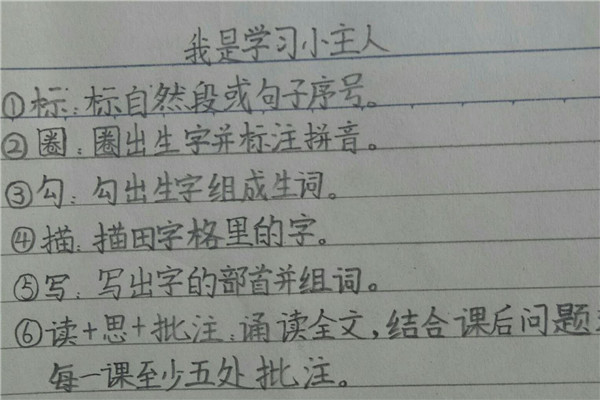 我是学习小主人
①标:标自然段或句子序号。
②圈:圈出生字并标注拼音。
③勾:勾出生字组成生词。
④描:描田字格里的字。
⑤写:写出字的部首并组词。
⑥读+思+批注:诵读全文,结合课后问题
每一课至少五处批注。